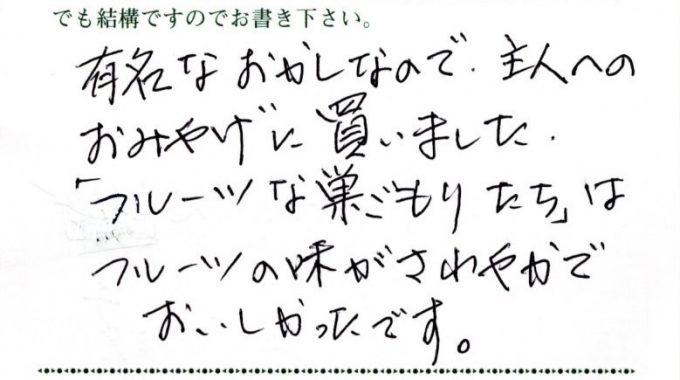 でも結構ですのでお書き下さい。
有名なおかしなので、主人への
おみやげに買いました.
「フルーツな巣ごもりたち」は
フルーツの味がさわやかで
おいしかったです。